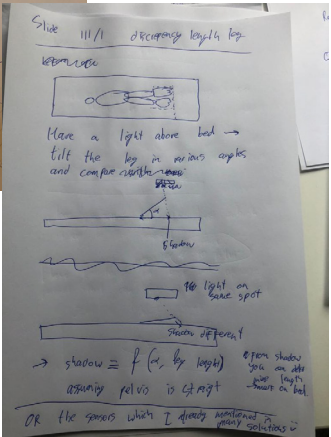 Slide III/1 discrepancy length leg
Have a light above bed →
tilt the leg in various angles
and compare
α
shadow
light on
same spot
shadow different
→ shadow = f (α, leg length)
assuming pelvis is straight
from shadow
you can
length
on bed
OR the sensors which I already mentioned in
many solutions